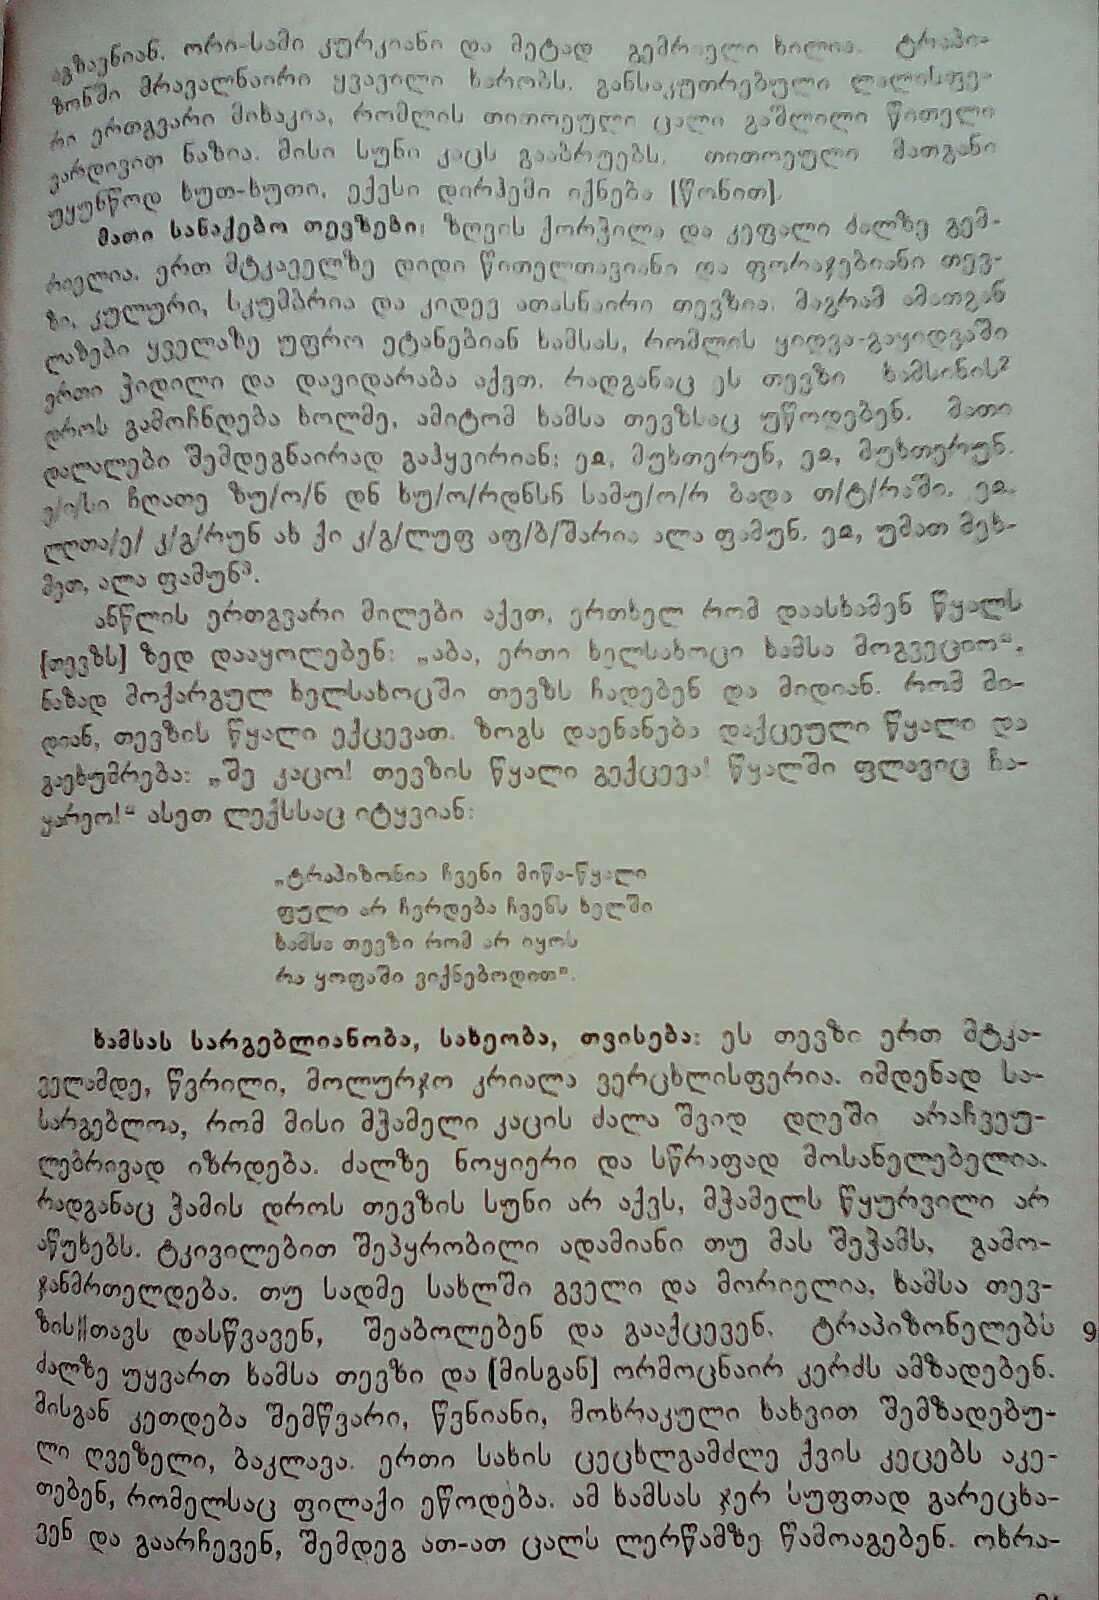 აგზავნიან. ორი-სამი კურკიანი და მეტად გემრიელი ხილია. ტრაპი-
ზონში მრავალნაირი ყვავილი ხარობს. განსაკუთრებული ლალისფე-
რი ერთგვარი მიხაკია, რომლის თითოეული ცალი გაშლილი წითელი
ვარდივით ნაზია. მისი სუნი კაცს გააბრუებს. თითოეული მათგანი
უყუნწოდ ხუთ-ხუთი, ექვსი დირჰემი იქნება [წონით].
მათი სანაქებო თევზები: ზღვის ქორჭილა და კეფალი ძალზე გემ-
რიელია. ერთ მტკაველზე დიდი წითელთავიანი და ფორაჯებიანი თევ-
ზი, კულური, სკუმბრია და კიდევ ათასნაირი თევზია. მაგრამ ამათგან
ლაზები ყველაზე უფრო ეტანებიან ხამსას, რომლის ყიდვა-გაყიდვაში
ერთი ჭიდილი და დავიდარაბა აქვთ. რადგანაც ეს თევზი ხამსინის²
დროს გამოჩნდება ხოლმე, ამიტომ ხამსა თევზსაც უწოდებენ. მათი
დალალები შემდეგნაირად გაჰყვირიან: ეჲ, მუხთერუნ, ეჲ, მუხთერუნ.
ჩღათე ზუ/ო/ნ დნ ხუ/ო/რდნსნ სამუ/ო/რ ბადა თ/ტ/რაში. ეჲ.
ლღთა/ე/ კ/გ/რუნ ახ ქი კ/გ/ლუფ აფ/ბ/შარია ალა ფამუნ. ეჲ, უმათ მეხ-
მეთ, ალა ფამუნ³.
ანწლის ერთგვარი მილები აქვთ, ერთხელ რომ დაასხამენ წყალს
[თევზს] ზედ დააყოლებენ: „აბა, ერთი ხელსახოცი ხამსა მოგვეციო“.
ნაზად მოქარგულ ხელსახოცში თევზს ჩადებენ და მიდიან. რომ მი-
დიან, თევზის წყალი ექცევათ. ზოგს დაენანება დაქცეული წყალი და
გაეხუმრება: „შე კაცო! თევზის წყალი გექცევა! წყალში ფლავიც ჩა-
ყარეო!“ ასეთ ლექსსაც იტყვიან:
„ტრაპიზონია ჩვენი მიწა-წყალი
ფული არ ჩერდება ჩვენს ხელში
ხამსა თევზი რომ არ იყოს
რა ყოფაში ვიქნებოდით“.
ხამსას სარგებლიანობა, სახეობა, თვისება: ეს თევზი ერთ მტკა-
ველამდე, წვრილი, მოლურჯო კრიალა ვერცხლისფერია. იმდენად სა-
სარგებლოა, რომ მისი მჭამელი კაცის ძალა შვიდ დღეში არაჩვეუ-
ლებრივად იზრდება. ძალზე ნოყიერი და სწრაფად მოსანელებელია.
რადგანაც ჭამის დროს თევზის სუნი არ აქვს, მჭამელს წყურვილი არ
აწუხებს. ტკივილებით შეპყრობილი ადამიანი თუ მას შეჭამს, გამო-
ჯანმრთელდება. თუ სადმე სახლში გველი და მორიელია, ხამსა თევ-
ზის||თავს დასწვავენ, შეაბოლებენ და გააქცევენ. ტრაპიზონელებს 9
ძალზე უყვართ ხამსა თევზი და [მისგან] ორმოცნაირ კერძს ამზადებენ.
მისგან კეთდება შემწვარი, წვნიანი, მოხრაკული ხახვით შემზადებუ-
ლი ღვეზელი, ბაკლავა. ერთი სახის ცეცხლგამძლე ქვის კეცებს აკე-
თებენ, რომელსაც ფილაქი ეწოდება. ამ ხამსას ჯერ სუფთად გარეცხა-
ვენ და გაარჩევენ, შემდეგ ათ-ათ ცალს ლერწამზე წამოაგებენ. ოხრა-